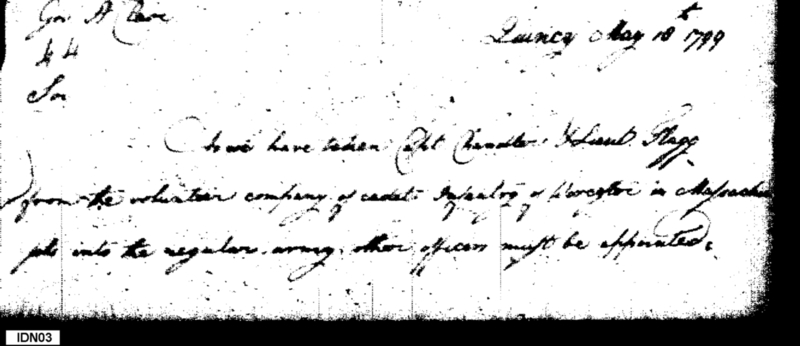 Quincy May 18th 1799
Sir
As we have taken Capt Chandler & Lieut. Flagg
from the volunteer company of cadet Infantry of Worcester in Massachu
setts into the regular army, other officers must be appointed.
IDN03